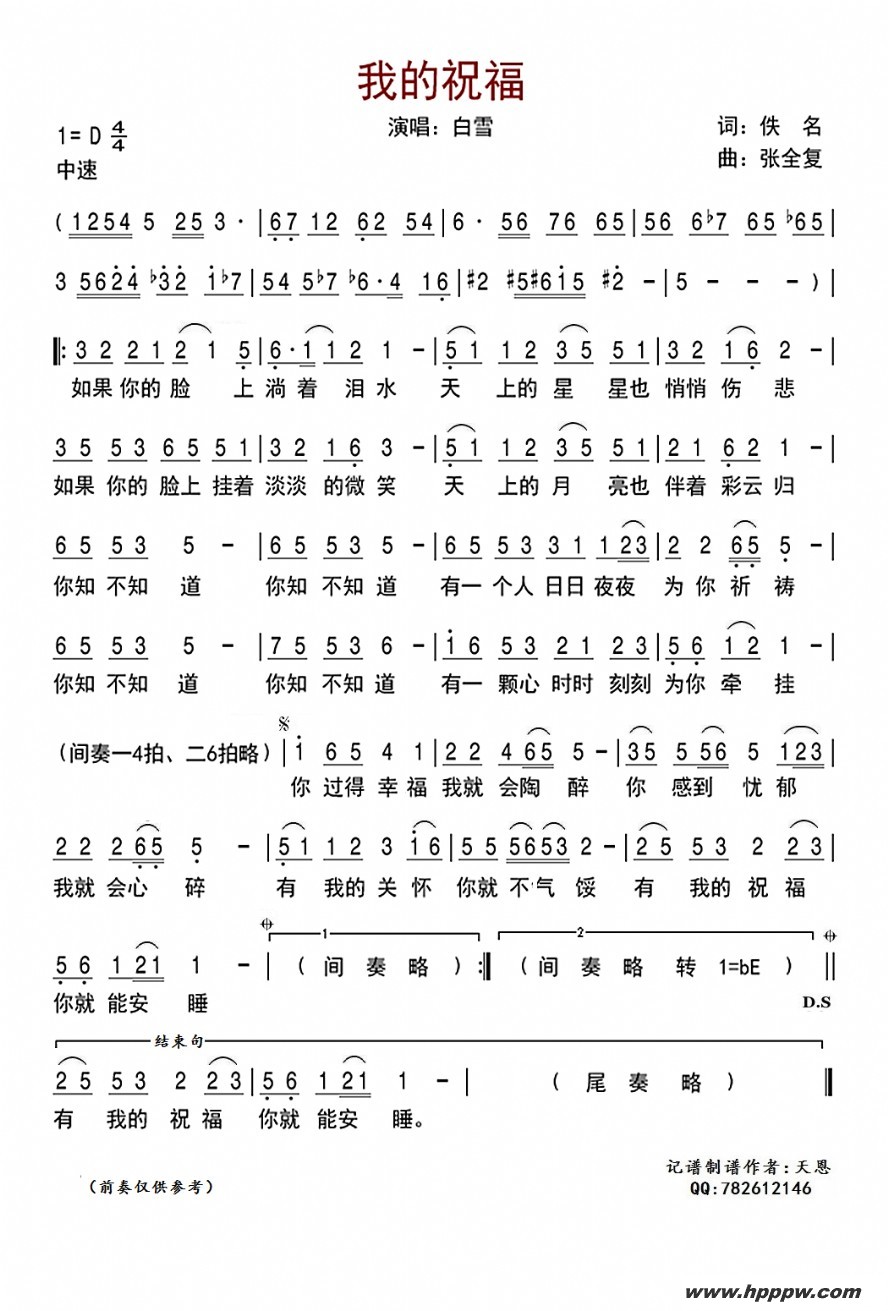 我的祝福
1= D 4/4 演唱：白雪 词：佚 名
中速 曲：张全复
( 1254 5 25 3 · | 67 12 62 54 | 6 · 56 76 65 | 56 6♭7 65 ♭65 |
3 5624 ♭32 1♭7 | 54 5♭7 ♭6·4 16 | #2 #5#615 #2 - | 5 - - - ) |
‖: 3 2 2 1 2 1 5 | 6 · 1 1 2 1 - | 5 1 1 2 3 5 5 1 | 3 2 1 6 2 - |
如果 你的 脸 上 淌 着 泪 水 天 上的 星 星也 悄悄 伤 悲
3 5 5 3 6 5 5 1 | 3 2 1 6 3 - | 5 1 1 2 3 5 5 1 | 2 1 6 2 1 - |
如果 你的 脸上 挂着 淡淡 的微 笑 天 上的 月 亮也 伴着 彩云 归
6 5 5 3 5 - | 6 5 5 3 5 - | 6 5 5 3 3 1 1 23 | 2 2 65 5 - |
你知 不知 道 你知 不知 道 有一 个人 日日 夜夜 为 你 祈 祷
6 5 5 3 5 - | 7 5 5 3 6 - | 1 6 5 3 2 1 2 3 | 5 6 1 2 1 - |
你知 不知 道 你知 不知 道 有一 颗心 时时 刻刻 为你 牵 挂
𝄋
（间奏一4拍、二6拍略）| 1 6 5 4 1 | 2 2 4 65 5 - | 35 5 56 5 123 |
你 过得 幸 福 我就 会陶 醉 你 感到 忧 郁
2 2 2 65 5 - | 5 1 1 2 3 1 6 | 5 5 5653 2 - | 2 5 5 3 2 2 3 |
我就 会心 碎 有 我的 关 怀 你就 不气 馁 有 我的 祝 福
𝄌 1 2 𝄌
5 6 1 21 1 - | （ 间 奏 略 ）:‖ （ 间 奏 略 转 1=bE ） ‖
你就 能安 睡 D.S
结束句
2 5 5 3 2 2 3 | 5 6 1 21 1 - | （ 尾 奏 略 ） ‖
有 我的 祝 福 你就 能安 睡。
记谱制谱作者:天恩
（前奏仅供参考） QQ:782612146
www.hpppw.com